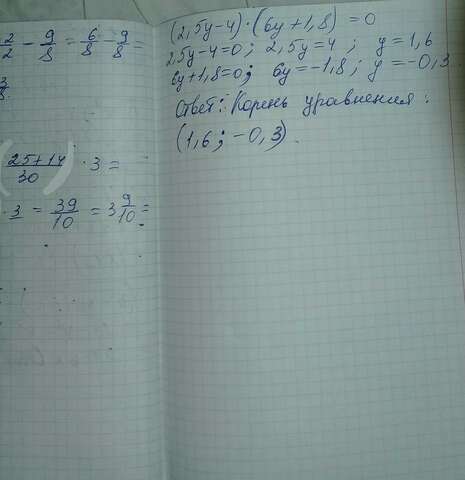 2/2 - 9/8 = 6/8 - 9/8 =
3/8
(25+14)/30 · 3 =
· 3 = 39/10 = 3 9/10 =
(2,5y-4)·(6y+1,8) = 0
2,5y-4=0; 2,5y=4; y=1,6
6y+1,8=0; 6y=-1,8; y=-0,3
Ответ: Корень уравнения:
(1,6; -0,3).